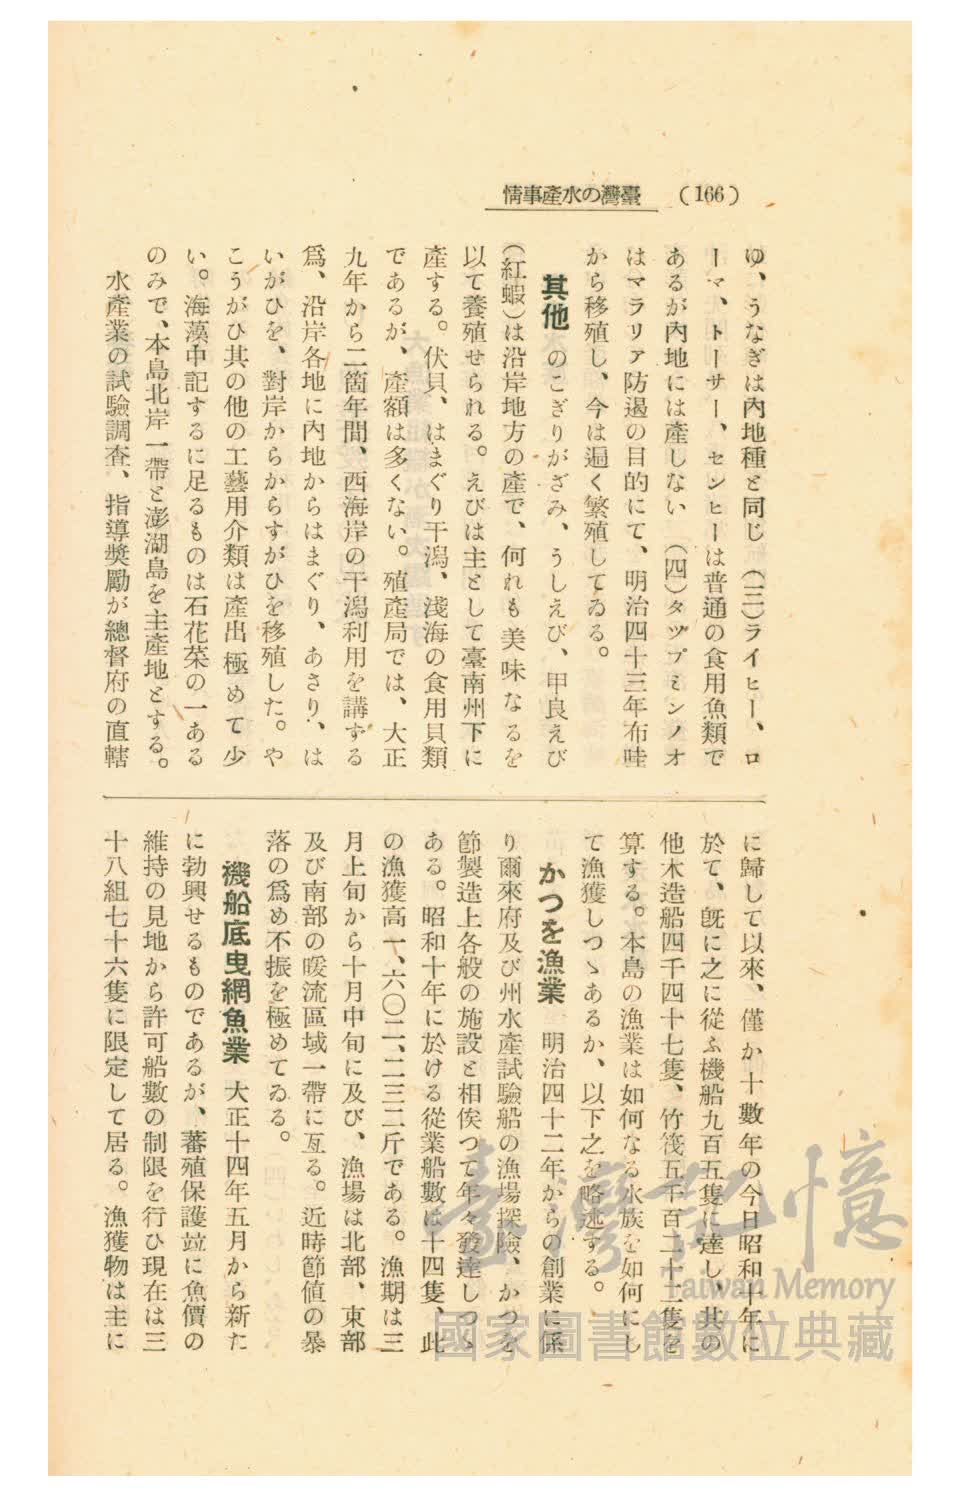 (166) 臺灣の水產事情
ゆ、うなぎは內地種と同じ (三)ライヒー、ロ
ーマ、トーサー、センヒーは普通の食用魚類で
あるが內地には產しない (四)タツプミンノオ
はマラリア防遏の目的にて、明治四十三年布哇
から移殖し、今は遍く繁殖してゐる。
其他 のこぎりがざみ、うしえび、甲良えび
(紅蝦)は沿岸地方の產で、何れも美味なるを
以て養殖せられる。えびは主として臺南州下に
產する。伏貝、はまぐり干潟、淺海の食用貝類
であるが、產額は多くない。殖產局では、大正
九年から二箇年間、西海岸の干潟利用を講ずる
爲、沿岸各地に內地からはまぐり、あさり、は
いがひを、對岸からからすがひを移殖した。や
こうがひ其の他の工藝用介類は產出極めて少
い。海藻中記するに足るものは石花菜の一ある
のみで、本島北岸一帶と澎湖島を主產地とする。
水產業の試驗調査、指導獎勵が總督府の直轄
に歸して以來、僅か十數年の今日昭和十年に
於て、既に之に從ふ機船九百五隻に達し、其の
他木造船四千四十七隻、竹筏五千百二十二隻を
算する。本島の漁業は如何なる水族を如何にし
て漁獲しつゝあるか、以下之を略述する。
かつを漁業 明治四十二年からの創業に係
り爾來府及び州水產試驗船の漁場探險、かつを
節製造上各般の施設と相俟つて年々發達しつゝ
ある。昭和十年に於ける從業船數は十四隻、此
の漁獲高一、六〇二、二三二斤である。漁期は三
月上旬から十月中旬に及び、漁場は北部、東部
及び南部の暖流區域一帶に亙る。近時節値の暴
落の爲め不振を極めてゐる。
機船底曳網魚業 大正十四年五月から新た
に勃興せるものであるが、蕃殖保護竝に魚價の
維持の見地から許可船數の制限を行ひ現在は三
十八組七十六隻に限定して居る。漁獲物は主に
臺灣記憶
Taiwan Memory
國家圖書館數位典藏